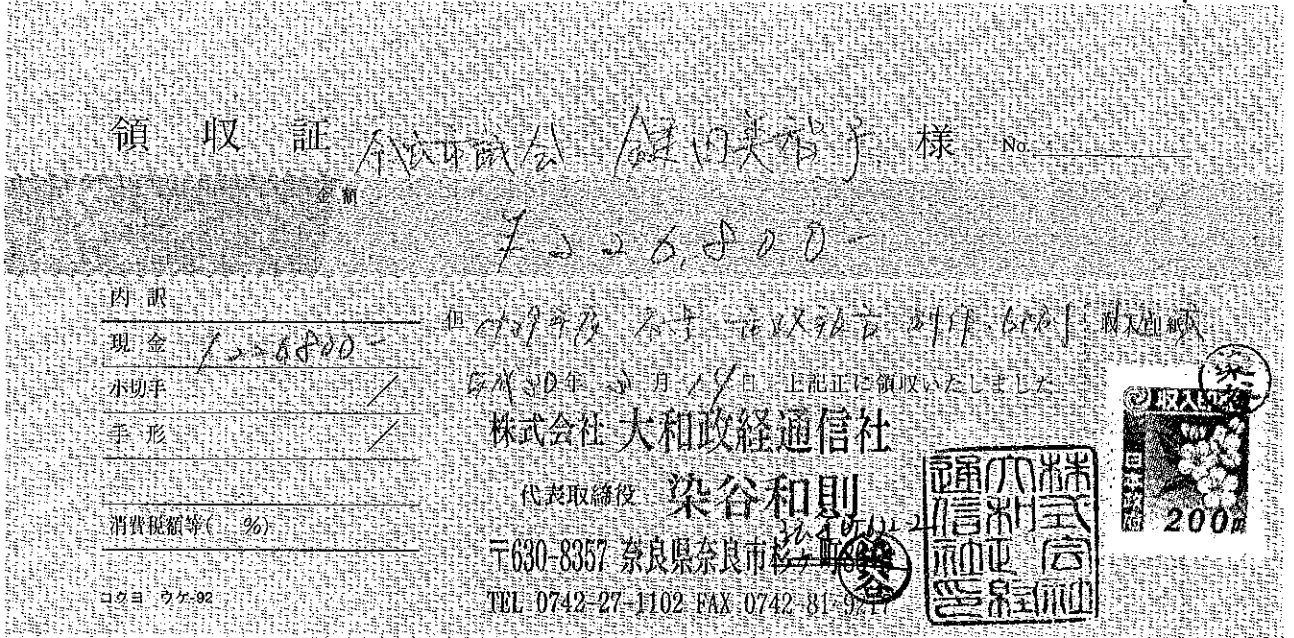 領収証 奈良市議会 鍵田美智子 様 No.
金額
¥226,800-
内訳
現金 ¥226800-
小切手 /
手形 /
消費税額等( %)
コクヨ ウケ-92
但 市政報告 制作・印刷 収入印紙
30年3月19日 上記正に領収いたしました
株式会社 大和政経通信社
代表取締役 染谷和則
〒630-8357 奈良県奈良市杉ヶ町
TEL 0742-27-1102 FAX 0742-81-9217
株式会社大和政経通信社印
収入印紙
日本政府
200円
染谷
染谷